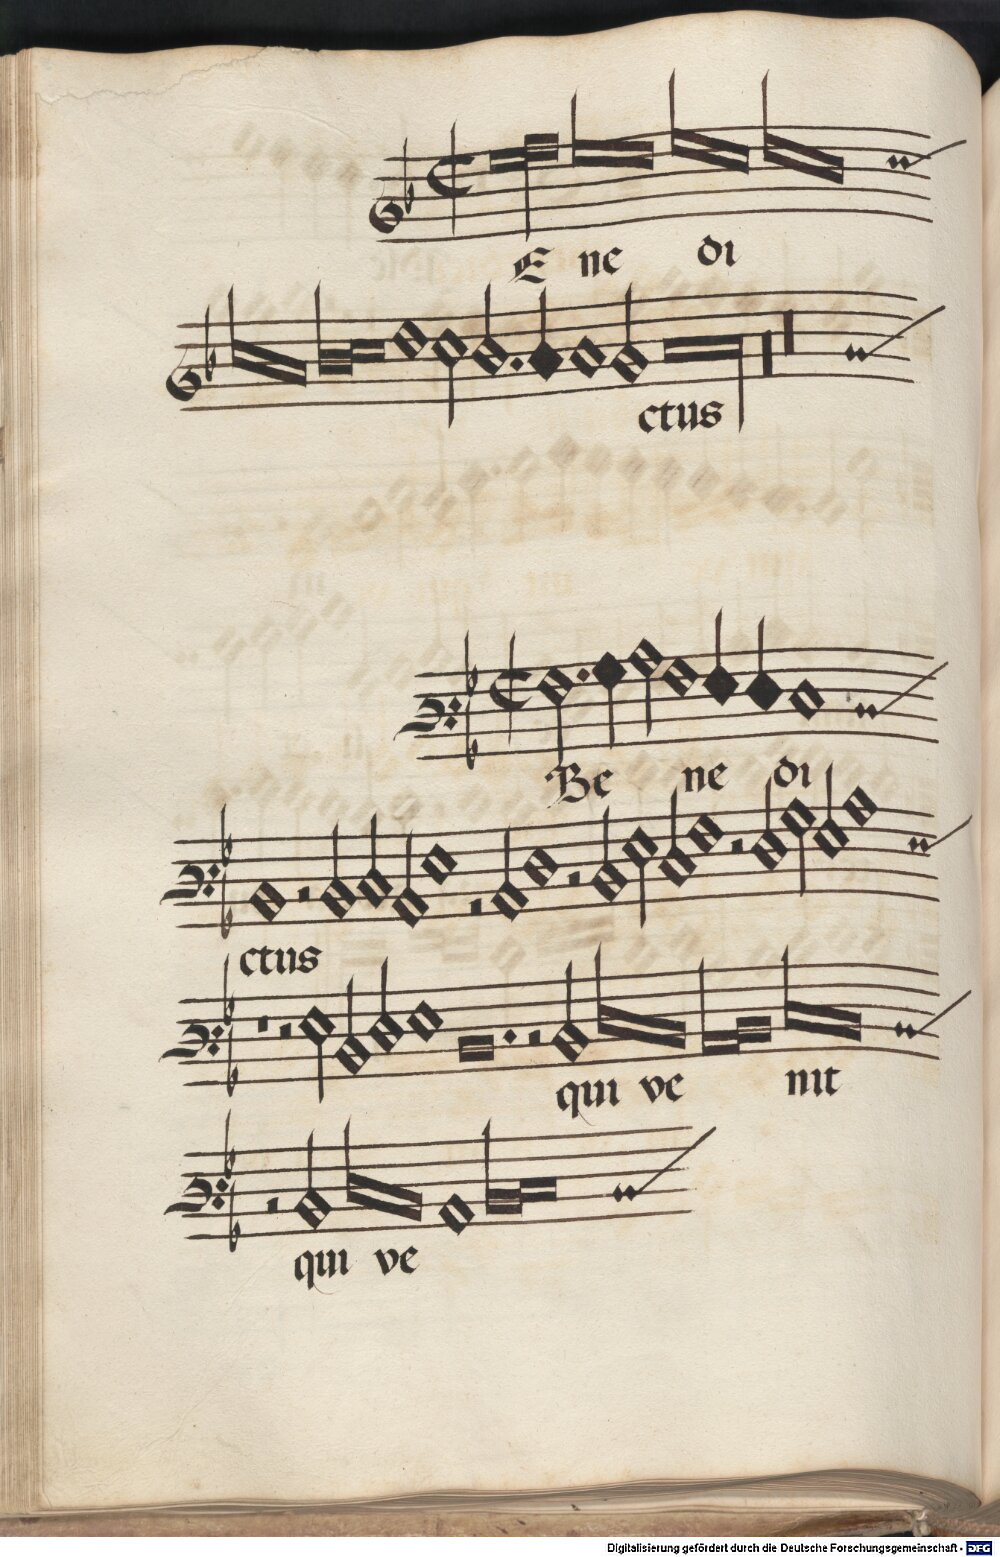 E ne di
ctus
Be ne di
ctus
qui ve nit
qui ve
Digitalisierung gefördert durch die Deutsche Forschungsgemeinschaft - DFG